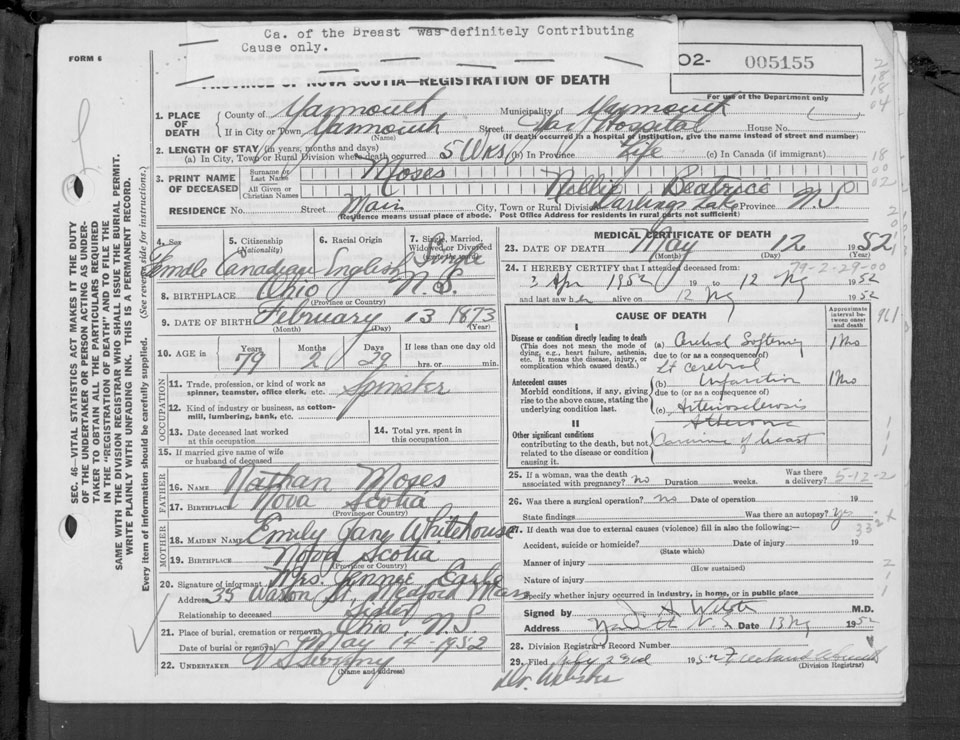 Ca. of the Breast was definitely Contributing
Cause only.
FORM 6
02- 005155
PROVINCE OF NOVA SCOTIA—REGISTRATION OF DEATH
For use of the Department only
1. PLACE OF DEATH
County of Yarmouth Municipality of Yarmouth
If in City or Town Yarmouth Street Yar. Hospital House No.
(Name) (If death occurred in a hospital or institution, give the name instead of street and number)
2. LENGTH OF STAY (in years, months and days)
(a) In City, Town or Rural Division where death occurred 5 Wks (b) In Province Life (c) In Canada (if immigrant)
3. PRINT NAME OF DECEASED
Surname or Last Name Moses
All Given or Christian Names Nellie Beatrice
RESIDENCE No. Street Main City, Town or Rural Division Darlings Lake Province N.S
(Residence means usual place of abode. Post Office Address for residents in rural parts not sufficient)
4. Sex 5. Citizenship (Nationality) 6. Racial Origin 7. Single, Married, Widowed or Divorced
Female Canadian English Single
8. BIRTHPLACE Ohio N.S.
(Province or Country)
9. DATE OF BIRTH February 13 1873
(Month) (Day) (Year)
10. AGE in Years Months Days If less than one day
79 2 29 hrs. or min.
OCCUPATION
11. Trade, profession, or kind of work as spinner, teamster, office clerk, etc. Spinster
12. Kind of industry or business, as cotton-mill, lumbering, bank, etc.
13. Date deceased last worked at this occupation
14. Total yrs. spent in this occupation
15. If married give name of wife or husband of deceased
FATHER
16. NAME Nathan Moses
17. BIRTHPLACE Nova Scotia
(Province or Country)
MOTHER
18. MAIDEN NAME Emily Jany Whitehouse
19. BIRTHPLACE Nova Scotia
(Province or Country)
20. Signature of informant Mrs. Jennie
Address 35 St, Medford Mass
Relationship to deceased Sister
21. Place of burial, cremation or removal Ohio N.S
Date of burial or removal May 14 - 1952
22. UNDERTAKER V S Sweeny
(Name and address)
MEDICAL CERTIFICATE OF DEATH
23. DATE OF DEATH May 12 1952
(Month) (Day) (Year)
79-2-29-00
24. I HEREBY CERTIFY that I attended deceased from:
Apr 1952 19 to 12 My 1952
and last saw her alive on 12 My 1952
CAUSE OF DEATH
Approximate interval between onset and death
I
Disease or condition directly leading to death
(This does not mean the mode of dying, e.g., heart failure, asthenia, etc. It means the disease, injury, or complication which caused death.)
(a) Cerebral Softening 1 Mo
due to (or as a consequence of)
Lt Cerebral
Antecedent causes
Morbid conditions, if any, giving rise to the above cause, stating the underlying condition last.
(b) Infarction 1 Mo
due to (or as a consequence of)
(c) Arteriosclerosis
II
Other significant conditions
contributing to the death, but not related to the disease or condition causing it.
Carcinoma of breast
25. If a woman, was the death associated with pregnancy? no Duration weeks. Was there a delivery?
5-12-2
26. Was there a surgical operation? no Date of operation 19
State findings Was there an autopsy? Yes
332x
27. If death was due to external causes (violence) fill in also the following:—
Accident, suicide or homicide? Date of injury 19
(State which)
Manner of injury
(How sustained)
Nature of injury
Specify whether injury occurred in industry, in home, or in public place
Signed by M.D.
Address Date 13 My 1952
28. Division Registrar's Record Number
29. Filed 23rd 1952
(Division Registrar)
Dr. Webster
SEC. 46—VITAL STATISTICS ACT MAKES IT THE DUTY
OF THE UNDERTAKER OR PERSON ACTING AS UNDER-
TAKER TO OBTAIN ALL THE PARTICULARS REQUIRED
IN THE "REGISTRATION OF DEATH" AND TO FILE THE
SAME WITH THE DIVISION REGISTRAR WHO SHALL ISSUE THE BURIAL PERMIT.
WRITE PLAINLY WITH UNFADING INK. THIS IS A PERMANENT RECORD.
Every item of information should be carefully supplied. (See reverse side for instructions.)